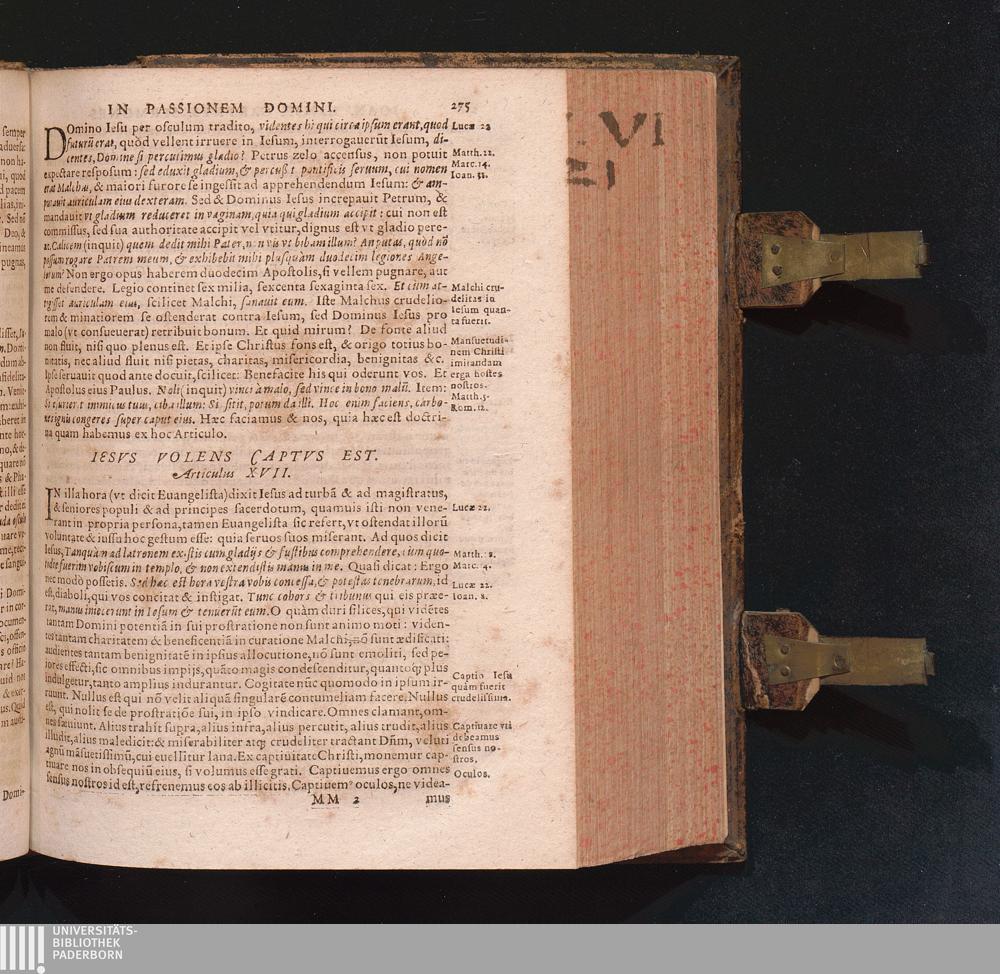 IN PASSIONEM DOMINI. 275
DOmino Iesu per osculum tradito, videntes hi qui circa ipsum erant, quod
futurū erat, quòd vellent irruere in Iesum, interrogauerūt Iesum, di-
centes, Domine si percutimus gladio? Petrus zelo accensus, non potuit
expectare resposum: sed eduxit gladium, & percussit pontificis seruum, cui nomen
erat Malchus, & maiori furore se ingessit ad apprehendendum Iesum: & am-
putauit auriculam eius dexteram. Sed & Dominus Iesus increpauit Petrum, &
mandauit vt gladium reduceret in vaginam, quia qui gladium accipit: cui non est
commissus, sed sua authoritate accipit vel vtitur, dignus est vt gladio pere-
at. Calicem (inquit) quem dedit mihi Pater, non vis vt bibam illum? An putas, quòd nō
possum rogare Patrem meum, & exhibebit mihi plusquàm duodecim legiones Ange-
lorum? Non ergo opus haberem duodecim Apostolis, si vellem pugnare, aut
me defendere. Legio continet sex milia, sexcenta sexaginta sex. Et cùm at-
tigisset auriculam eius, scilicet Malchi, sanauit eum. Iste Malchus crudelio-
rem & minatiorem se ostenderat contra Iesum, sed Dominus Iesus pro
malo (vt consueuerat) retribuit bonum. Et quid mirum? De fonte aliud
non fluit, nisi quo plenus est. Et ipse Christus fons est, & origo totius bo-
nitatis, nec aliud fluit nisi pietas, charitas, misericordia, benignitas &c.
Ipse seruauit quod ante docuit, scilicet: Benefacite his qui oderunt vos. Et
Apostolus eius Paulus. Noli (inquit) vinci à malo, sed vince in bono malū. Item:
Si esurierit inimicus tuus, ciba illum: Si sitit, potum da illi. Hoc enim faciens, carbo-
nes ignis congeres super caput eius. Hæc faciamus & nos, quia hæc est doctri-
na quam habemus ex hoc Articulo.
Lucæ 22
Matth. 22.
Marc. 14.
Ioan.
Malchi cru-
delitas in
Iesum quan-
ta fuerit.
Mansuetudi-
nem Christi
imitandam
erga hostes
nostros.
Matth. 5.
Rom. 12.
IESVS VOLENS CAPTVS EST.
Articulus XVII.
IN illa hora (vt dicit Euangelista) dixit Iesus ad turbā & ad magistratus,
& seniores populi & ad principes sacerdotum, quamuis isti non vene-
rant in propria persona, tamen Euangelista sic refert, vt ostendat illorū
voluntate & iussu hoc gestum esse: quia seruos suos miserant. Ad quos dicit
Iesus, Tanquàm ad latronem existis cum gladijs & fustibus comprehendere, cùm quo-
tidie fuerim vobiscum in templo, & non extendistis manus in me. Quasi dicat: Ergo
nec modò possetis. Sed hæc est hora vestra vobis concessa, & potestas tenebrarum, id
est, diaboli, qui vos concitat & instigat. Tunc cohors & tribunus qui eis præe-
rat, manus iniecerunt in Iesum & tenuerūt eum. O quàm duri silices, qui vidētes
tantam Domini potentiā in sui prostratione non sunt animo moti: viden-
tes tantam charitatem & beneficentiā in curatione Malchi, nō sunt ædificati:
audientes tantam benignitatē in ipsius allocutione, nō sunt emoliti, sed pe-
iores effecti, sic omnibus impijs, quāto magis condescenditur, quantoq; plus
indulgetur, tanto amplius indurantur. Cogitate nūc quomodo in ipsum ir-
ruunt. Nullus est qui nō velit aliquā singularē contumeliam facere. Nullus
est, qui nolit se de prostratiōe sui, in ipso vindicare. Omnes clamant, om-
nes sæuiunt. Alius trahit supra, alius infra, alius percutit, alius trudit, alius
illudit, alius maledicit: & miserabiliter atq; crudeliter tractant Dñm, veluti
agnū māsuetissimū, cui euellitur lana. Ex captiuitate Christi, monemur cap-
tiuare nos in obsequiū eius, si volumus esse grati. Captiuemus ergo omnes
sensus nostros id est, refrenemus eos ab illicitis. Captiuem⁹ oculos, ne videa-
Lucæ 22.
Matth.
Marc.
Lucæ 22.
Ioan.
Captio Iesu
quàm fuerit
crudelissima.
Captiuare vti
debeamus
sensus no-
stros.
Oculos.
MM 2 mus
VI
UNIVERSITÄTS-
BIBLIOTHEK
PADERBORN